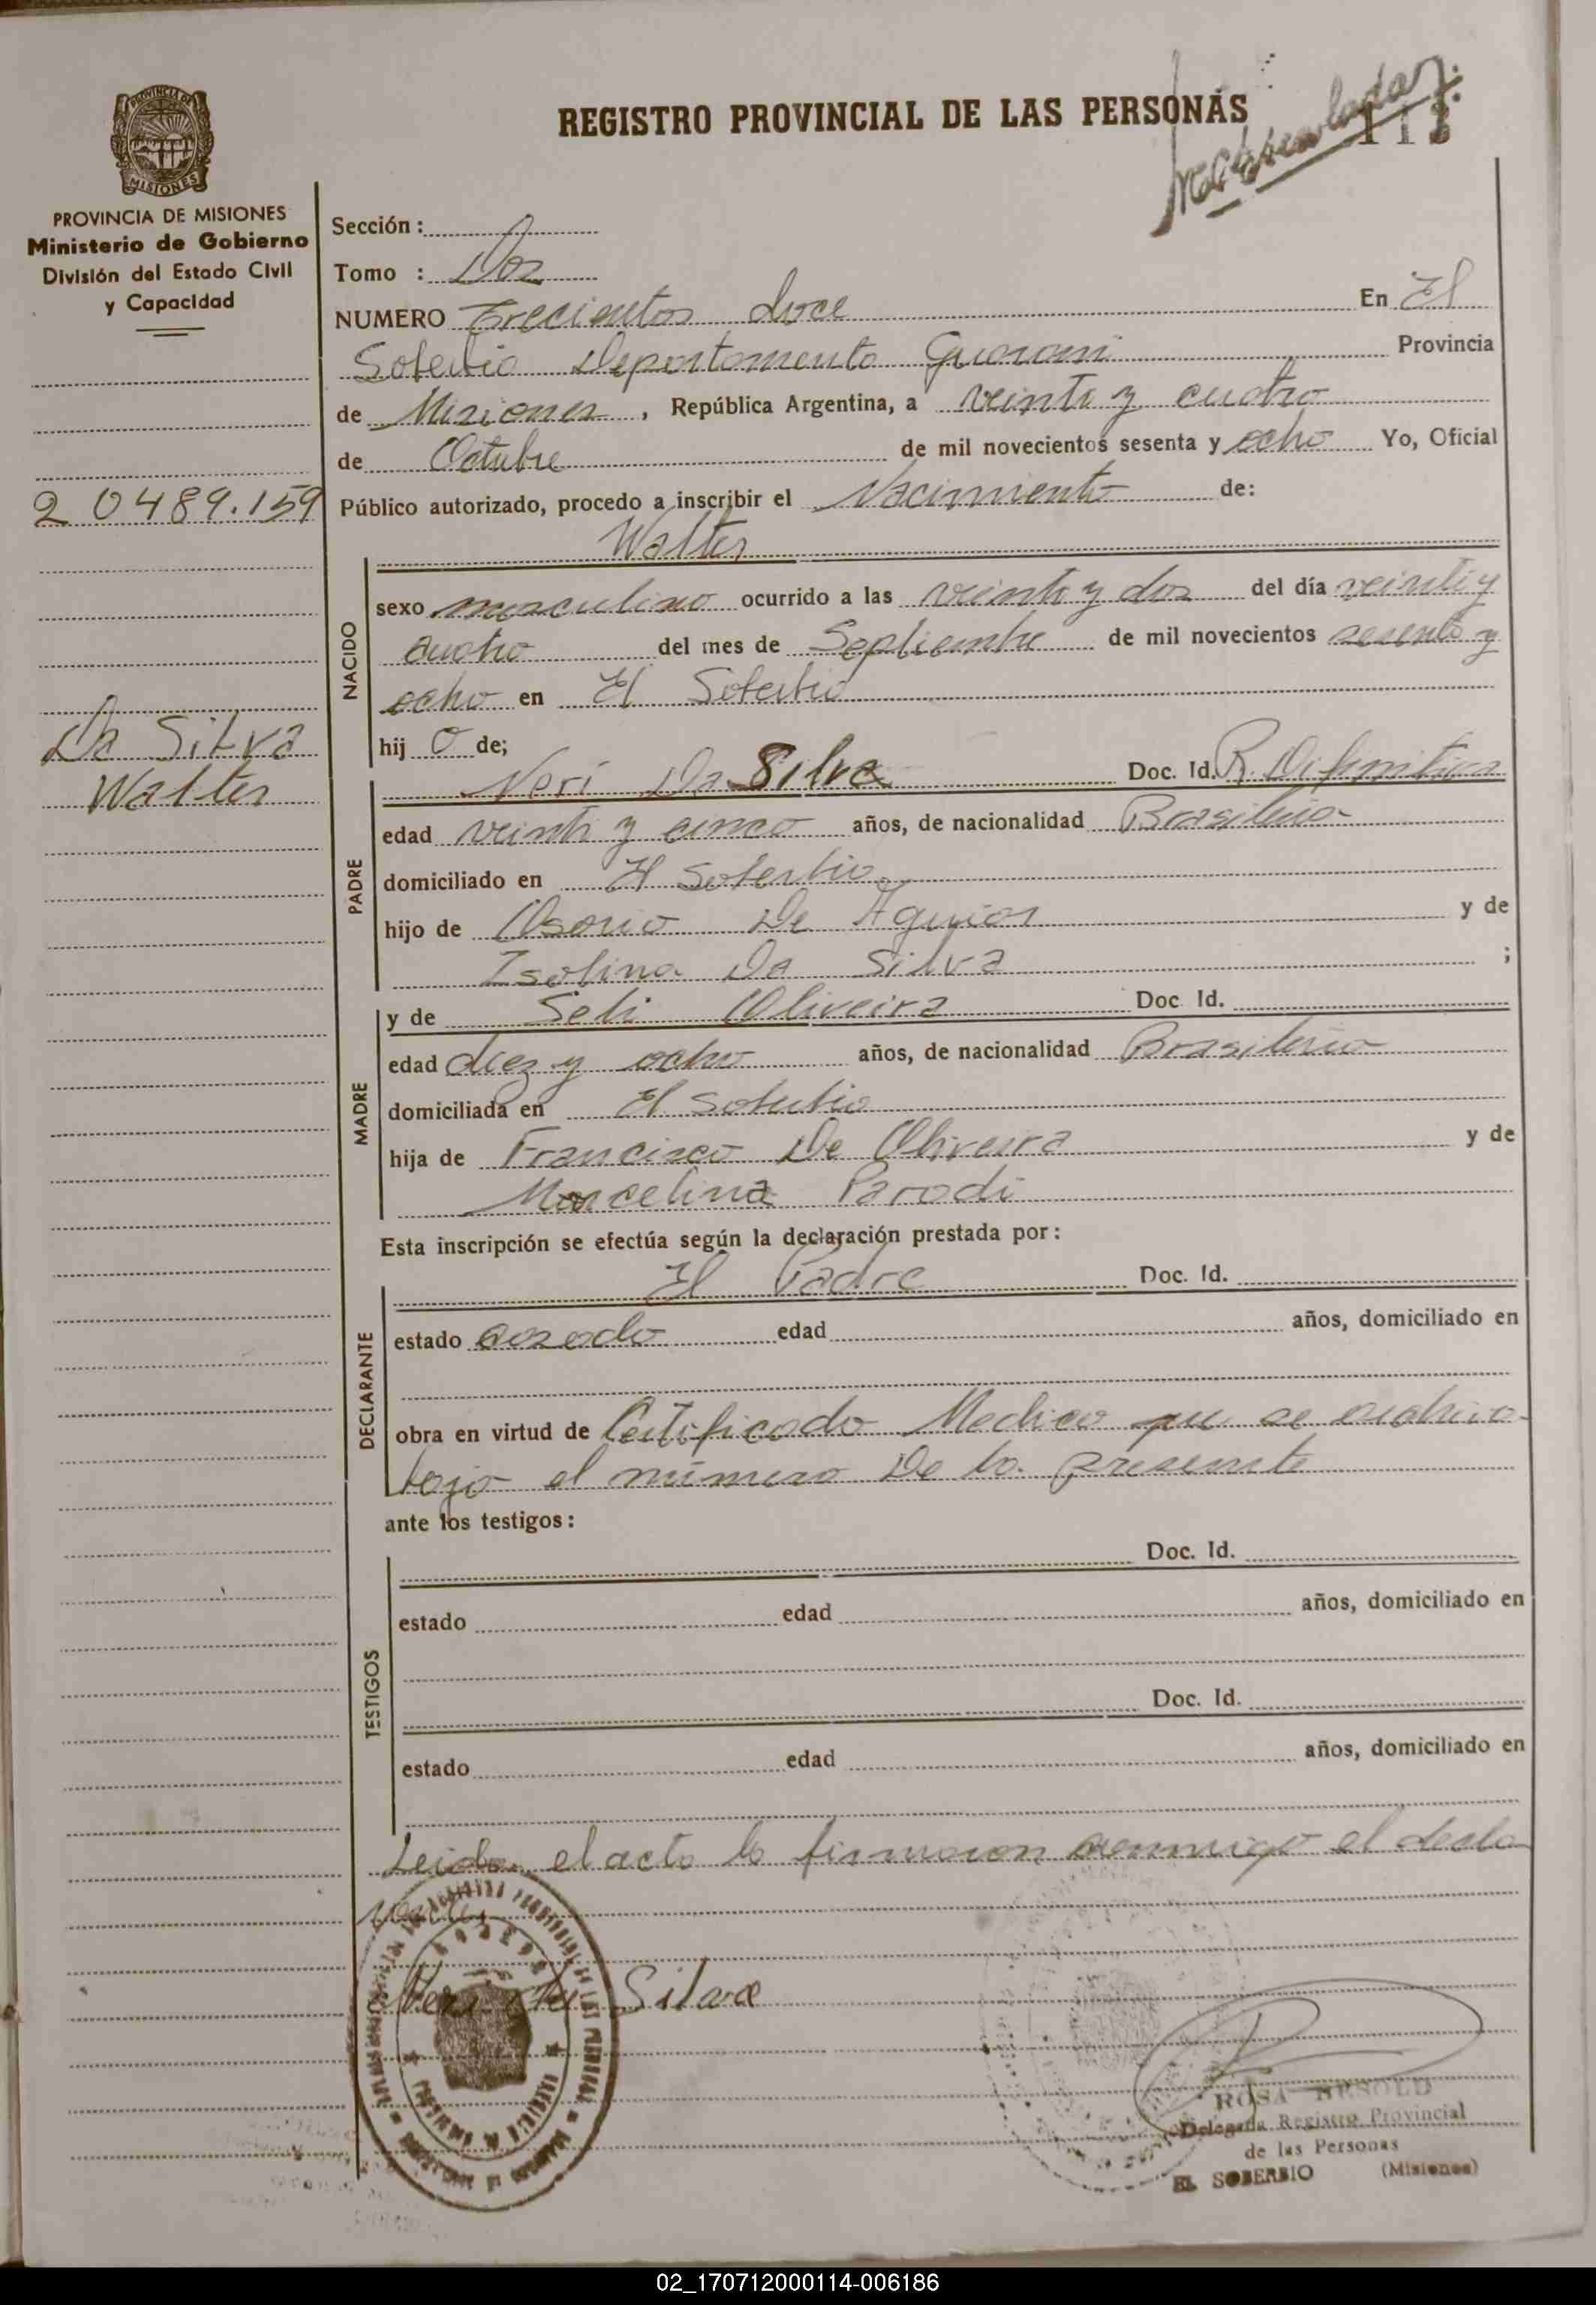 REGISTRO PROVINCIAL DE LAS PERSONAS
113
PROVINCIA DE
MISIONES
PROVINCIA DE MISIONES
Ministerio de Gobierno
División del Estado Civil
y Capacidad
20489.159
Da Silva
Walter
Sección:
Tomo : Dos
NUMERO Trecientos doce En El
Soberbio Departamento Guarani Provincia
de Misiones, República Argentina, a veinte y cuatro
de Octubre de mil novecientos sesenta y ocho Yo, Oficial
Público autorizado, procedo a inscribir el Nacimiento de:
Walter
NACIDO
sexo masculino ocurrido a las veinte y dos del día veinte y
cuatro del mes de Septiembre de mil novecientos sesenta y
ocho en El Soberbio
hij o de;
PADRE
Neri Da Silva Doc. Id. R. Definitiva
edad veinte y cinco años, de nacionalidad Brasileña
domiciliado en El Soberbio
hijo de Osorio De Aguiar y de
Isolina Da Silva ;
MADRE
y de Seli Oliveira Doc. Id.
edad diez y ocho años, de nacionalidad Brasileña
domiciliada en El Soberbio
hija de Francisco De Oliveira y de
Marcelina Parodi
Esta inscripción se efectúa según la declaración prestada por:
DECLARANTE
El Padre Doc. Id.
estado casado edad años, domiciliado en
obra en virtud de Certificado Medico que se archiva
bajo el número De la presente
ante los testigos:
TESTIGOS
Doc. Id.
estado edad años, domiciliado en
Doc. Id.
estado edad años, domiciliado en
Leida el acta la firmaron conmigo el decla
rante
Neri da Silva
ROSA BESOLD
Delegada Registro Provincial
de las Personas
EL SOBERBIO (Misiones)
02_170712000114-006186